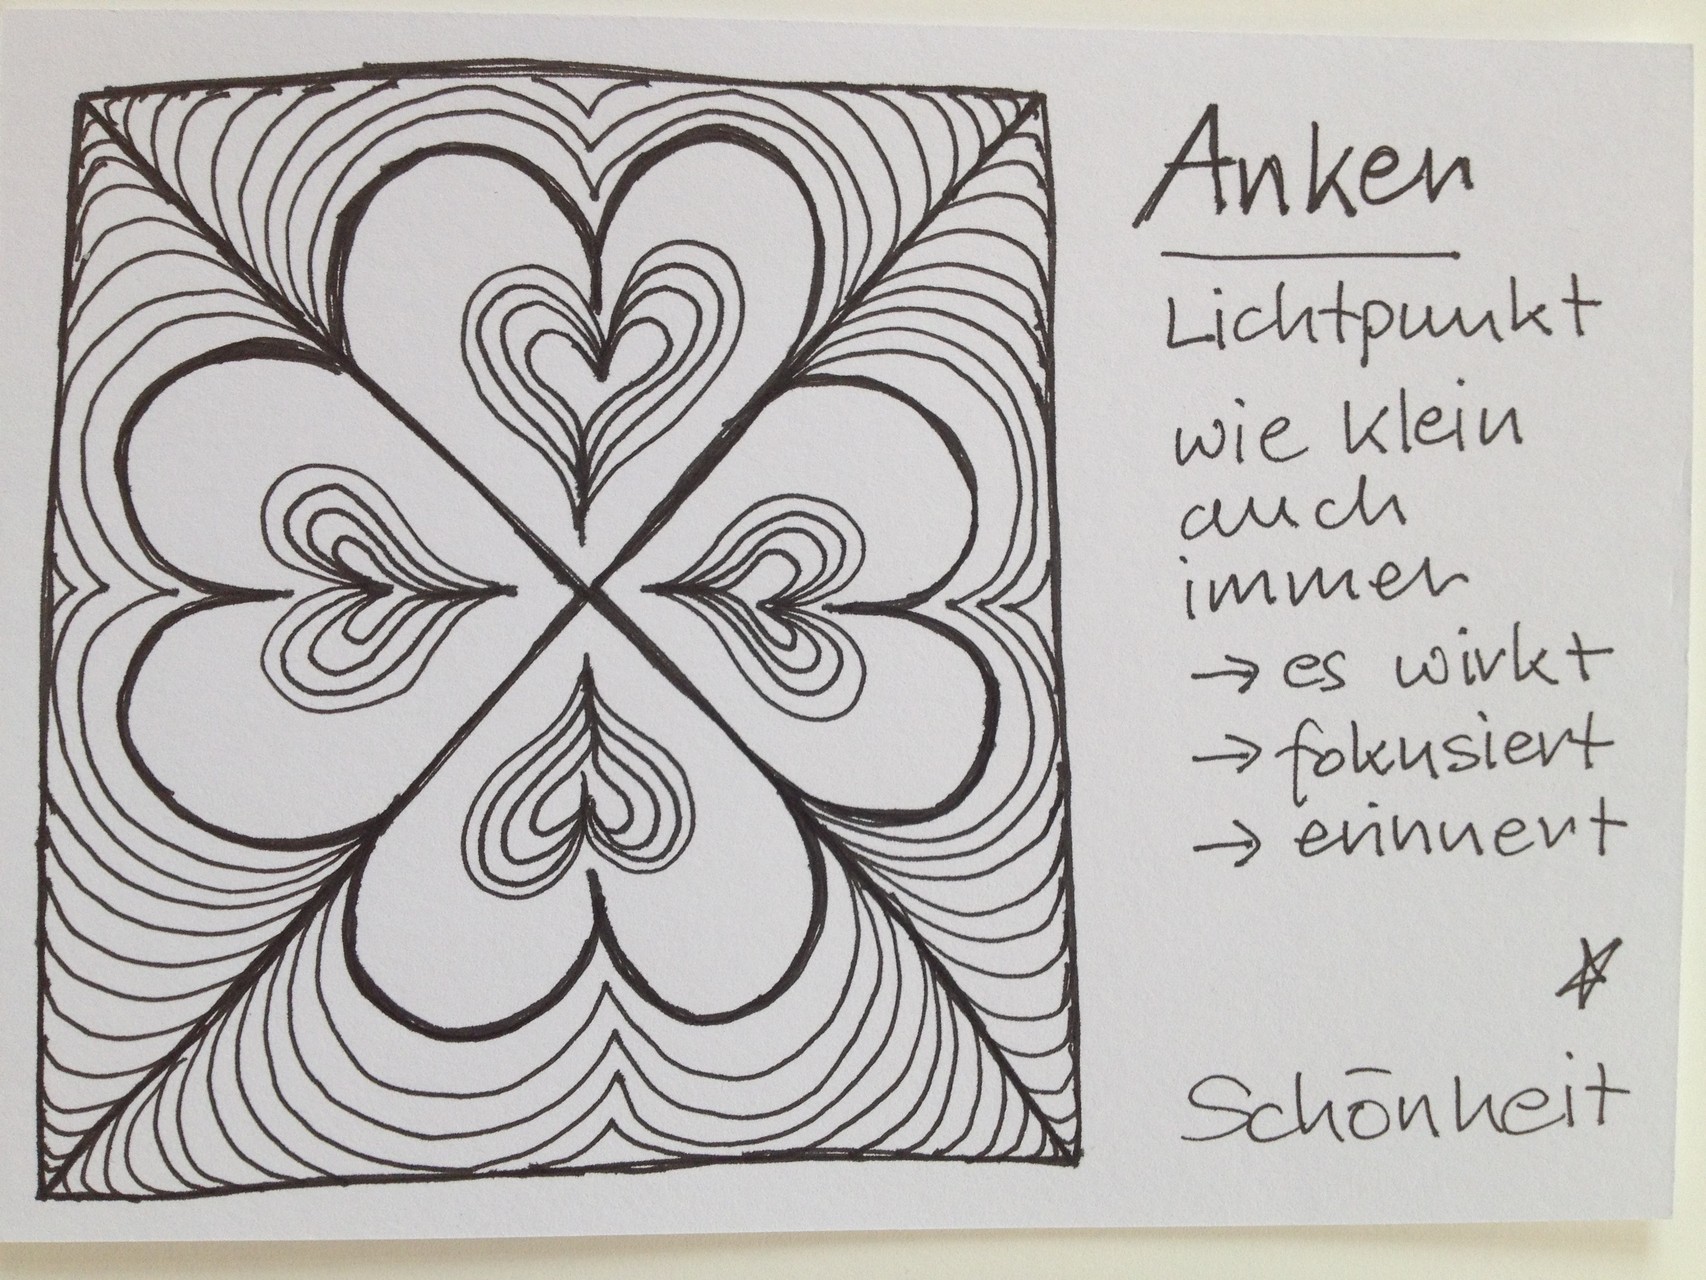 Anker
Lichtpunkt
wie klein
auch
immer
→ es wirkt
→ fokusiert
→ erinnert
Schönheit